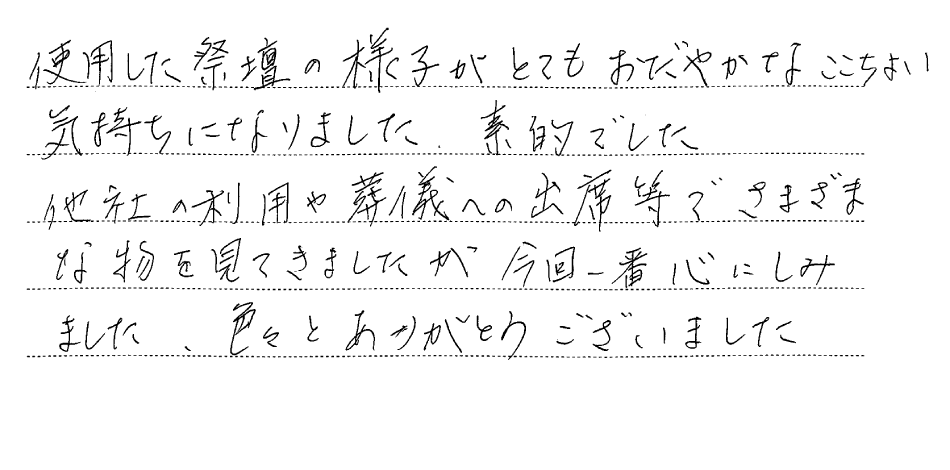 使用した祭壇の様子がとてもおだやかなここちよい
気持ちになりました. 素的でした
他社の利用や葬儀への出席等でさまざま
な物を見てきましたが今回一番心にしみ
ました、色々とありがとうございました